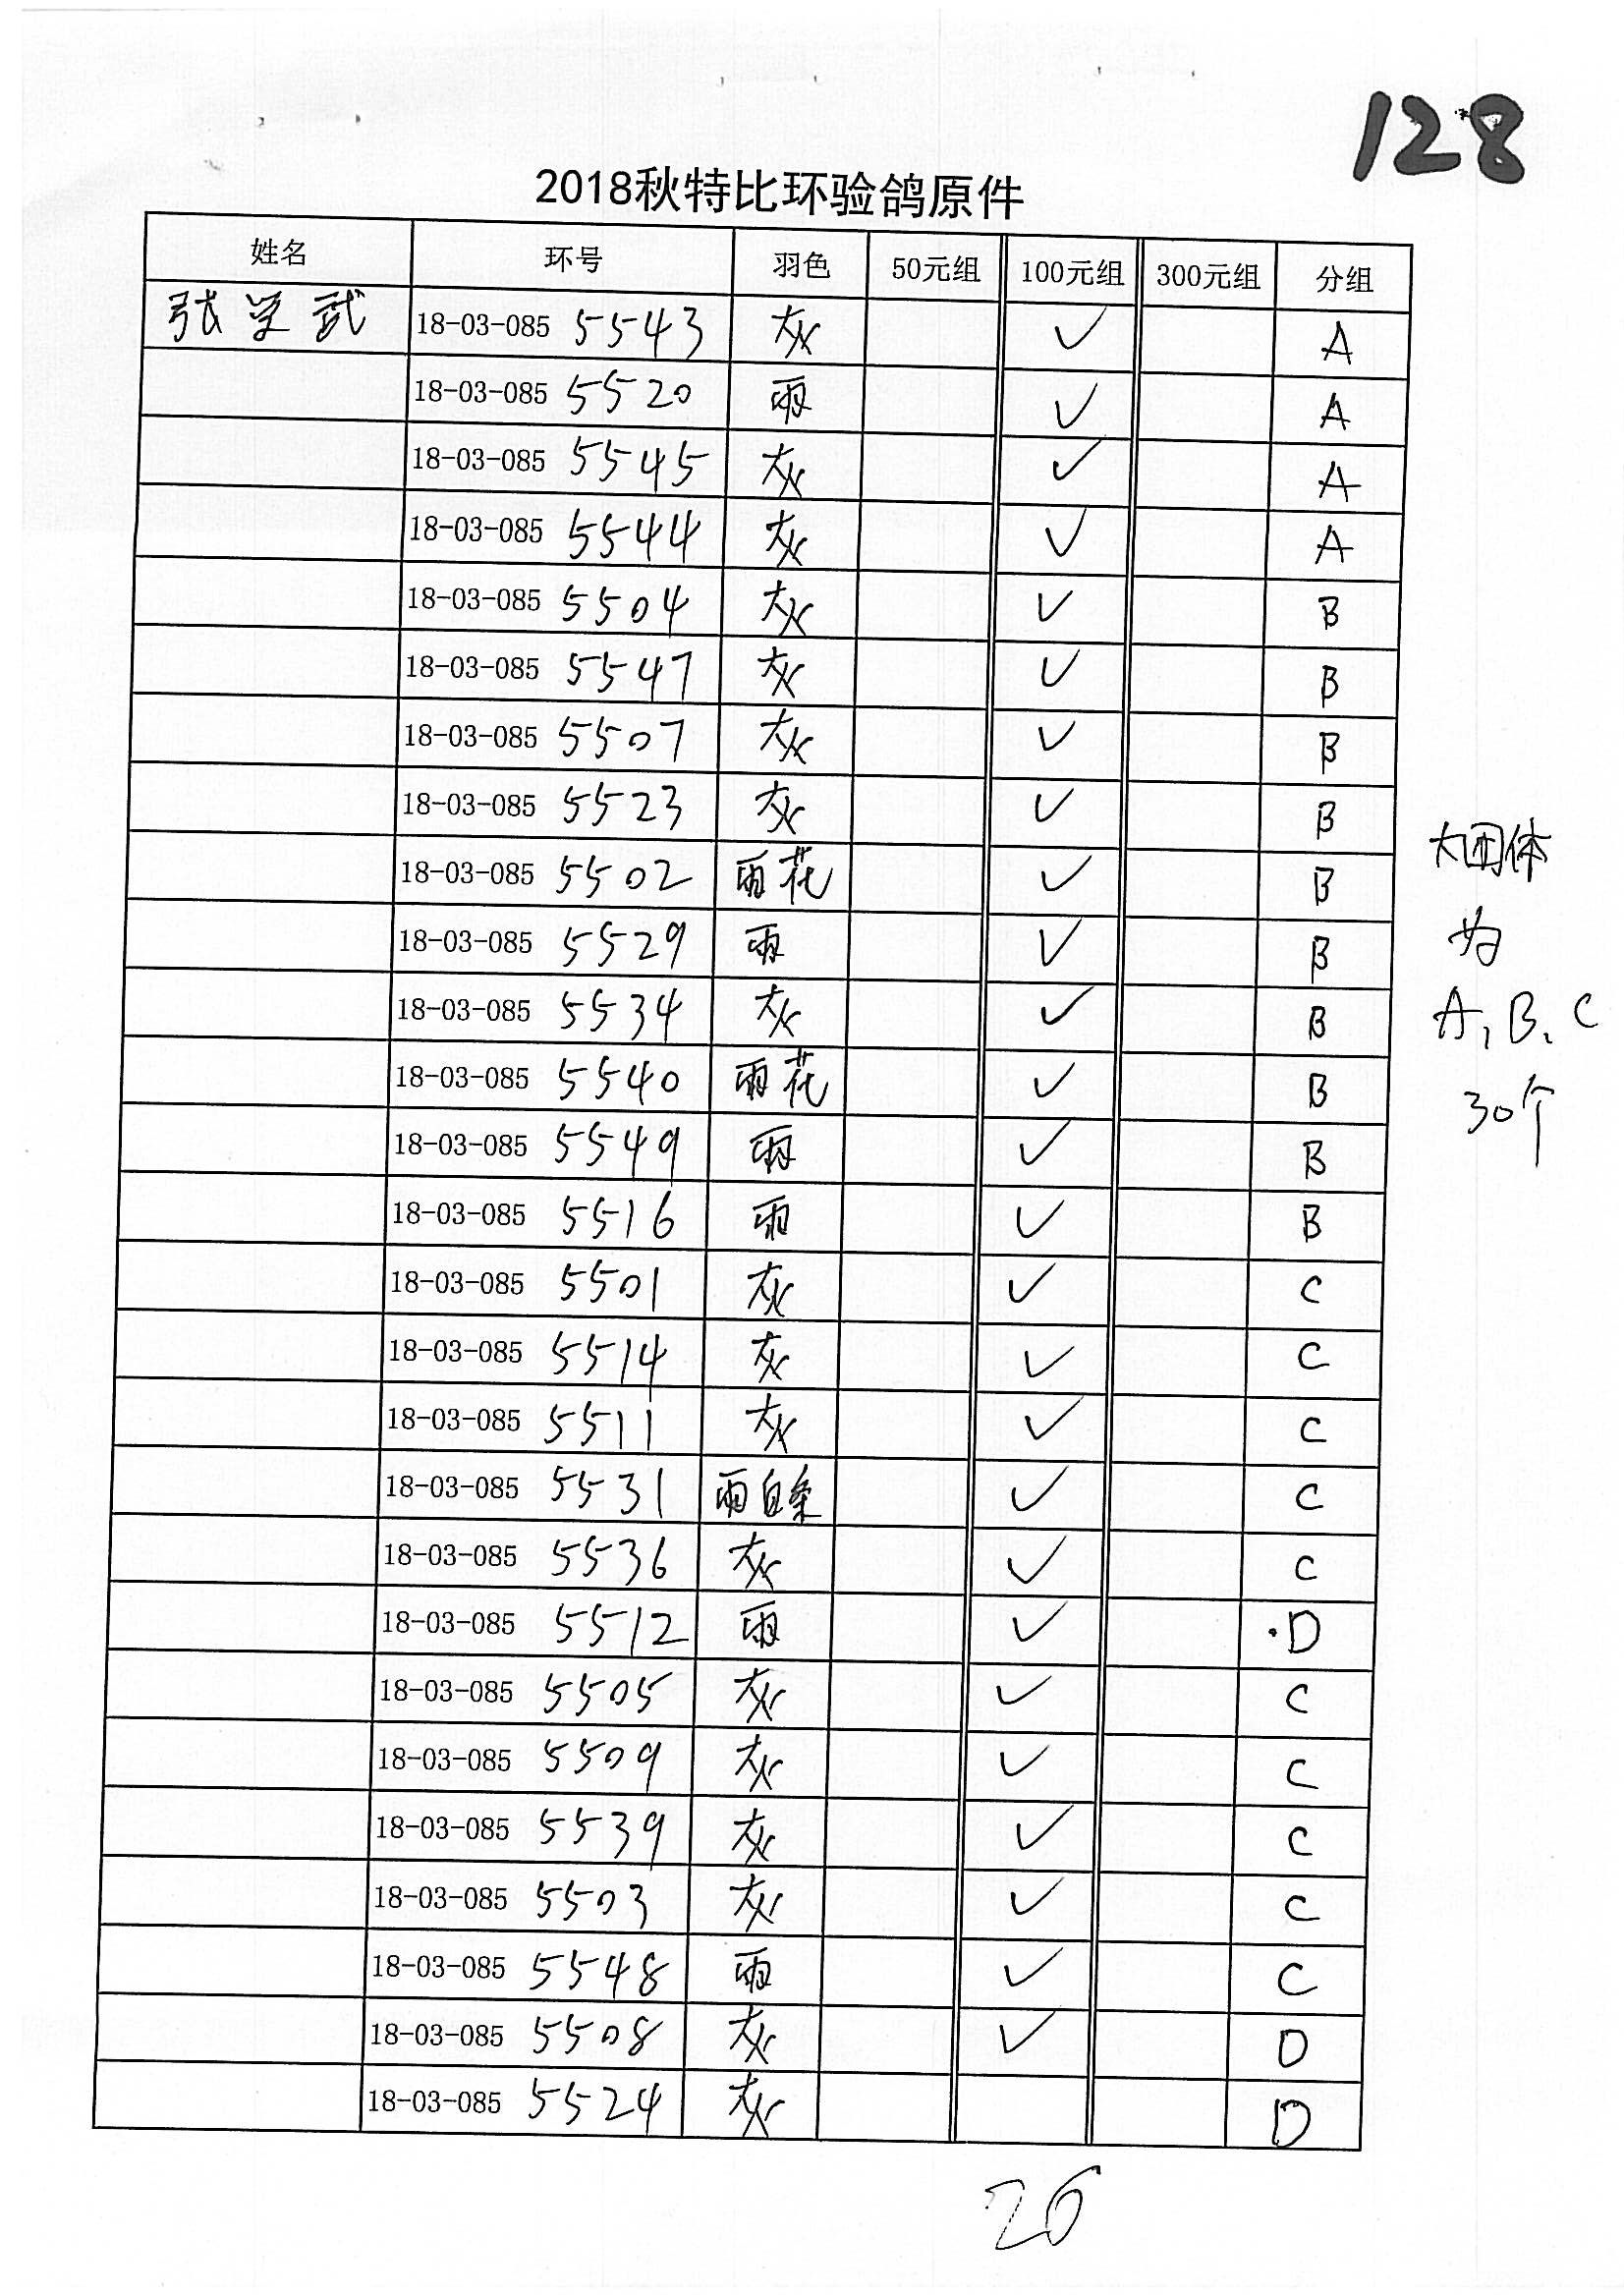 128
2018秋特比环验鸽原件
姓名 环号 羽色 50元组 100元组 300元组 分组
张学武 18-03-085 5543 灰 ✓ A
18-03-085 5520 雨 ✓ A
18-03-085 5545 灰 ✓ A
18-03-085 5544 灰 ✓ A
18-03-085 5504 灰 ✓ B
18-03-085 5547 灰 ✓ B
18-03-085 5507 灰 ✓ B
18-03-085 5523 灰 ✓ B
18-03-085 5502 雨花 ✓ B
18-03-085 5529 雨 ✓ B
18-03-085 5534 灰 ✓ B
18-03-085 5540 雨花 ✓ B
18-03-085 5549 雨 ✓ B
18-03-085 5516 雨 ✓ B
18-03-085 5501 灰 ✓ C
18-03-085 5514 灰 ✓ C
18-03-085 5511 灰 ✓ C
18-03-085 5531 雨白条 ✓ C
18-03-085 5536 灰 ✓ C
18-03-085 5512 雨 ✓ D
18-03-085 5505 灰 ✓ C
18-03-085 5509 灰 ✓ C
18-03-085 5539 灰 ✓ C
18-03-085 5503 灰 ✓ C
18-03-085 5548 雨 ✓ C
18-03-085 5508 灰 ✓ D
18-03-085 5524 灰 D
大团体
为
A、B、C
30个
26